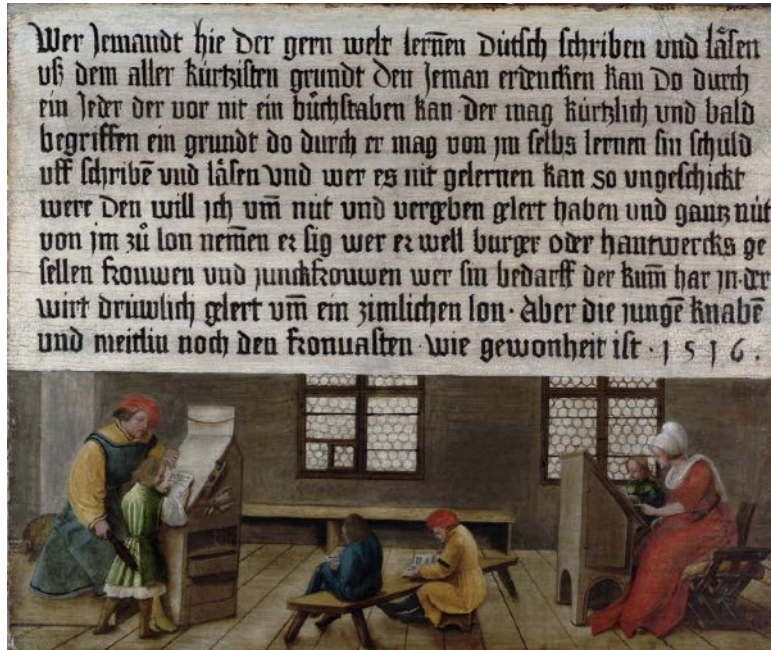 Wer Jemandt hie der gern welt lernẽn Dütsch schriben und läsen
uß dem aller kürtzisten grundt den Jeman erdencken kan Do durch
ein Jeder der vor nit ein bůchstaben kan der mag kürtzlich und bald
begriffen ein grundt do durch er mag von jm selbs lernen sin schuld
uff schribẽ und läsen und wer es nit gelernen kan so ungeschickt
were Den will jch um̃ nüt und vergeben gelert haben und gantz nüt
von jm zů lon nem̃en er sig wer er well burger oder hantwercks ge
sellen frouwen und junckfrouwen wer sin bedarff der kum̃ har jn · der
wirt drüwlich gelert um̃ ein zimlichen lon · Aber die jungẽ knabẽ
und meitlin noch den fronuasten wie gewonheit ist · 1 5 1 6 ·